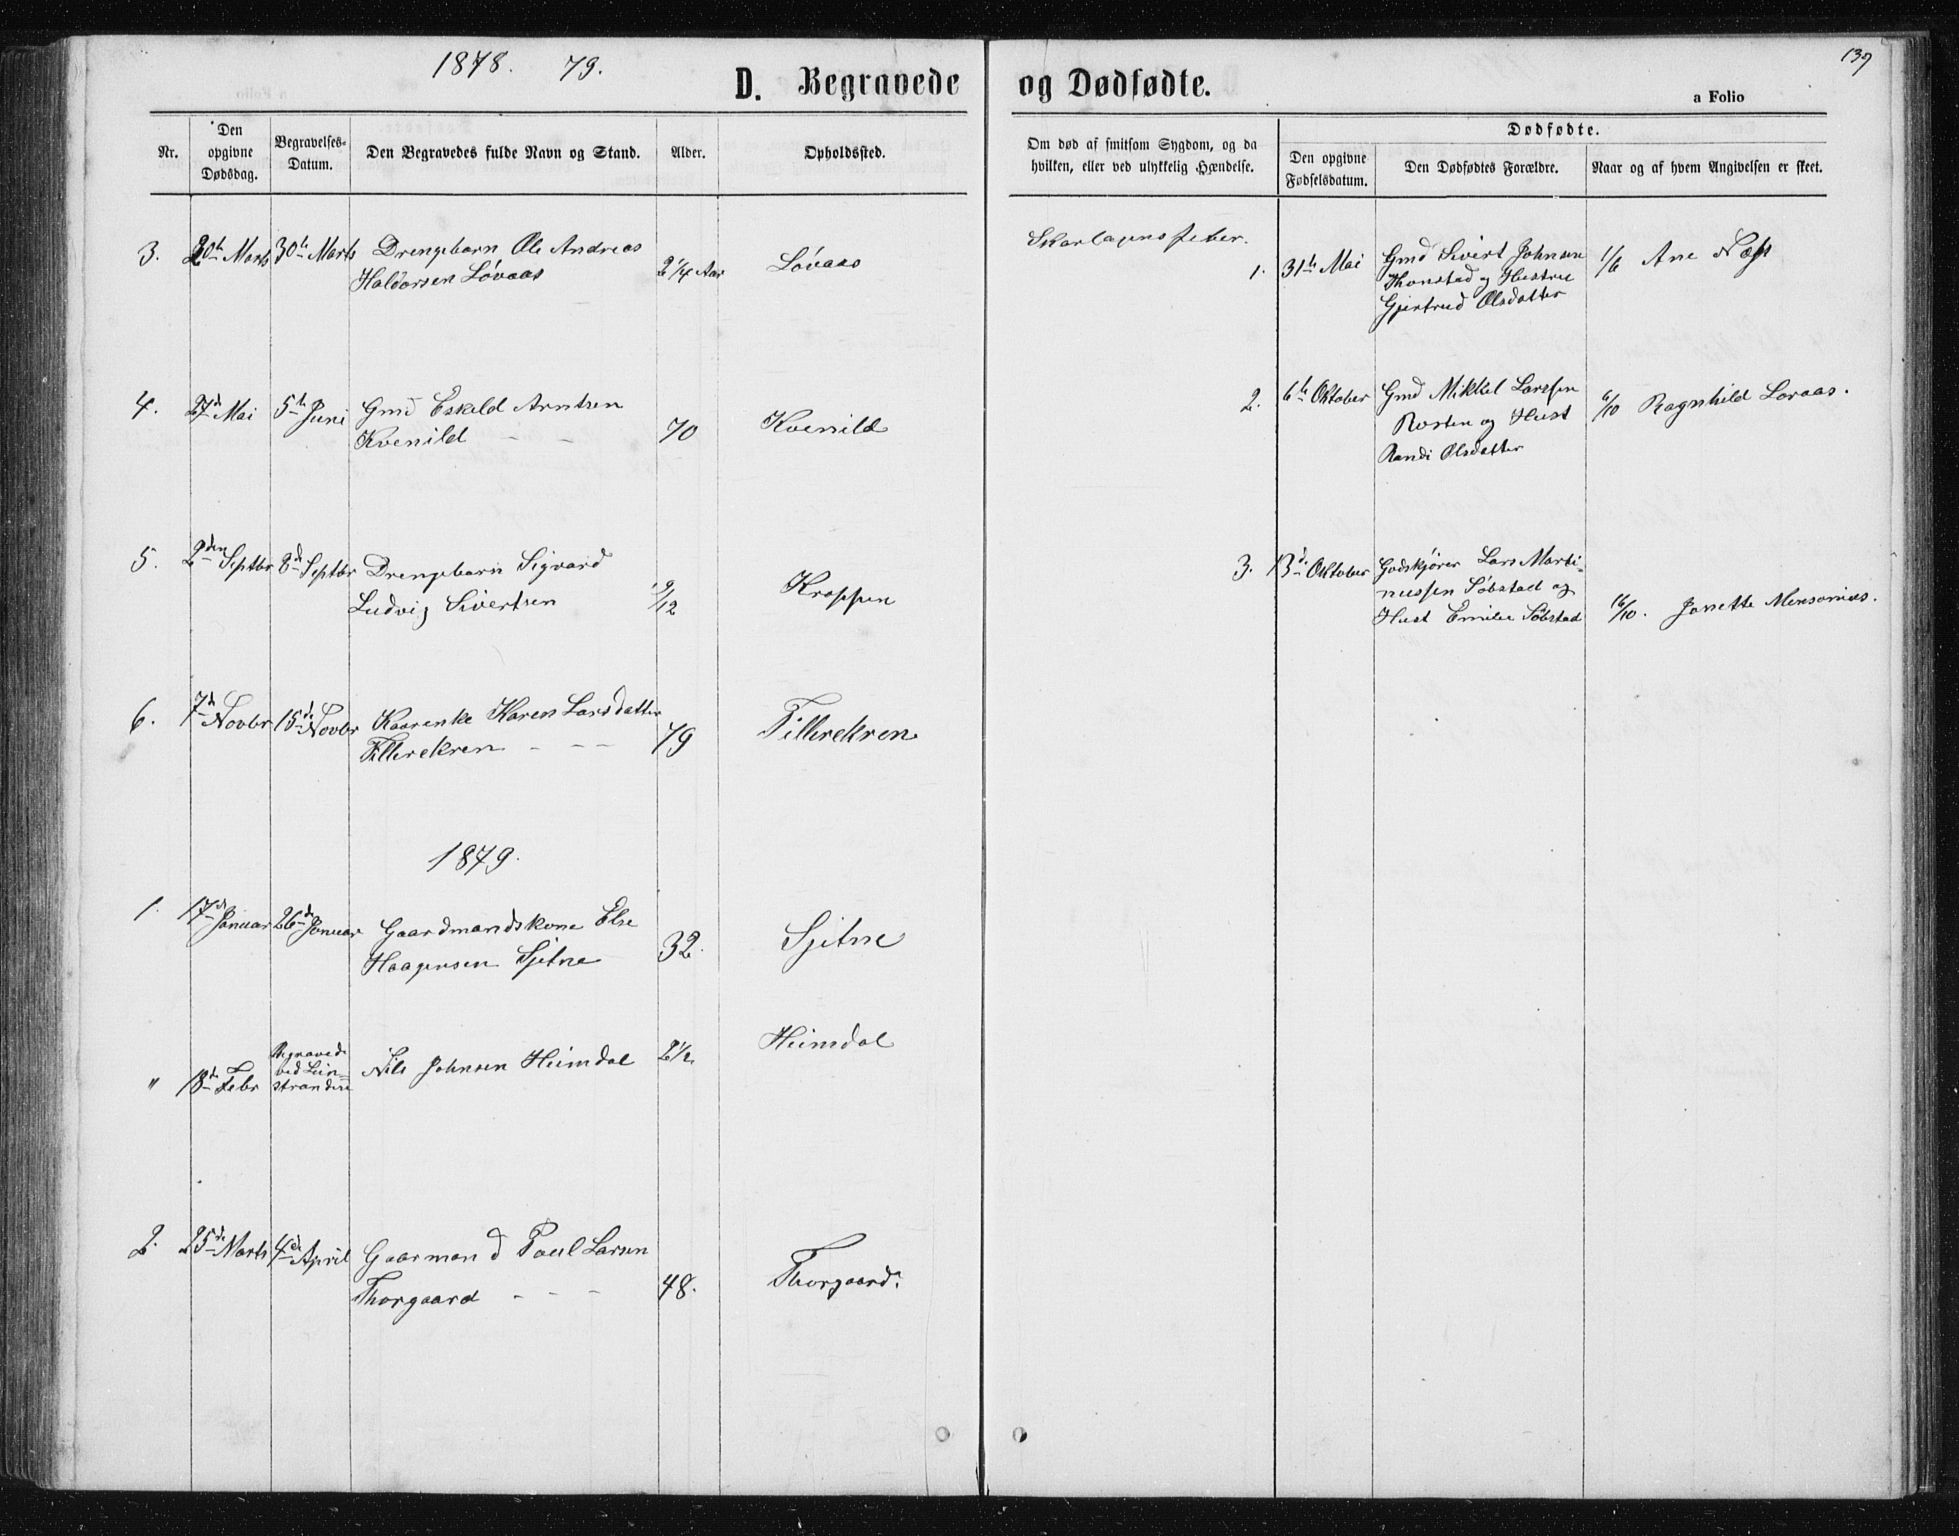 1878. 79.
D. Begravede og Dødfødte.
139
a Folio
Nr.
Den opgivne Dødsdag.
Begravelses-Datum.
Den Begravedes fulde Navn og Stand.
Alder.
Opholdssted.
Om død af smitsom Sygdom, og da hvilken, eller ved ulykkelig Hændelse.
Dødfødte.
Den opgivne Fødselsdatum.
Den Dødfødtes Forældre.
Naar og af hvem Angivelsen er skeet.
3. 20de Marts 30te Marts Drengebarn Ole Andreas
Haldorsen Løvaas 2 1/4 Aar Løvaas
Skarlagensfeber.
4. 27d Mai 5te Juni Gmd Eskild Arntsen
Kvenild - - 70 Kvenild
5. 2den Septbr 8d Septbr Drengebarn Sigvard
Ludvig Sivertsen 9/12 Kroppen
6. 7d Novbr 15de Novbr Kaarenke Karen Larsdatter
Tillerekren - - - 79 Tillerekren
1879.
1. 17d Januar 26d Januar Gaardmandskone Else
Haagensen Sjetne 32. Sjetne
" 18de Febr Begravede
ved Lein-
strandene
Nils Johnsen Heimdal 2 1/2 Heimdal
2. 25de Marts 4de April Gaarmand Paul Larsen
Thorgaard - - - 48. Thorgaard.
1. 31te Mai Gmd Sivert Johnsen
Thonstad og Hustru
Gjertrud Olsdatter
1/6 Ane Næss
2. 6te Oktober Gmd Mikkel Larssen
Rosten og Hust
Randi Olsdatter
6/10 Ragnhild Loraas.
3. 13d Oktober Godskjører Lars Marti-
nussen Søbstad og
Hust Emilie Søbstad
16/10. Janette